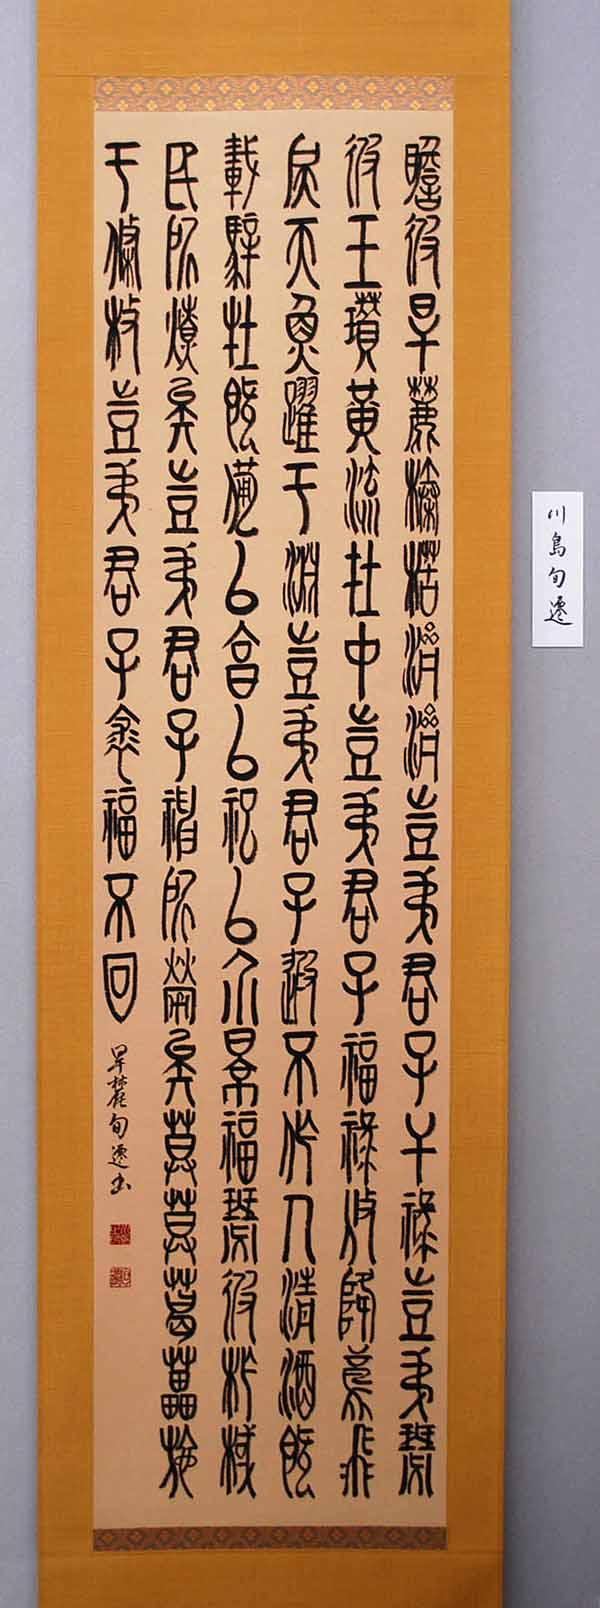 瞻彼旱麓榛楛濟濟豈弟君子干祿豈弟瑟
彼玉瓚黃流在中豈弟君子福祿攸降鳶飛
戾天魚躍于淵豈弟君子遐不作人清酒既
載騂牡既備以享以祀以介景福瑟彼柞棫
民所燎矣豈弟君子神所勞矣莫莫葛藟施
于條枚豈弟君子求福不回
旱麓 旬遷書
川島旬遷